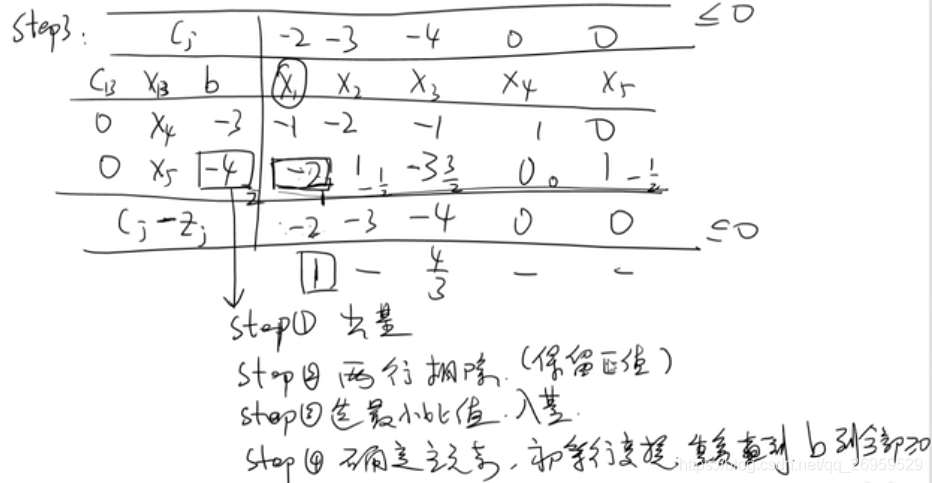 Step3:
≤0
Cj -2 -3 -4 0 0
CB XB b X1 X2 X3 X4 X5
0 X4 -3 -1 -2 -1 1 0
0 X5 -4 2 -2 1 1 -1/2 -3 3/2 0 0 1 -1/2
Cj-Zj -2 -3 -4 0 0 ≤0
1 - 4/3 - -
Step① 出基
Step② 两行相除.(保留正值)
Step③选最小比值.入基.
Step④ 确定主元素,初等行变换,重复直到b列全部为
https://blog.csdn.net/qq_26959529